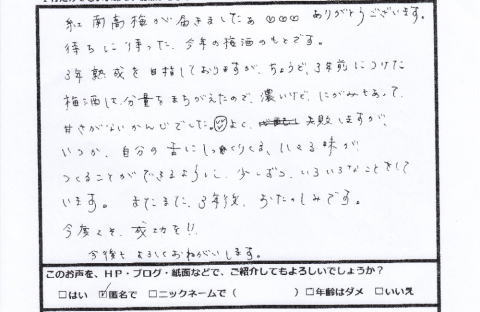 紅南高梅が届きましたぁ ♡♡♡ ありがとうございます。
待ちに待った、今年の梅酒のもとです。
3年熟成を目指しておりますが、ちょうど、3年前につけた
梅酒は、分量をまちがえたので、濃いけど、にがみもあって、
甘さがないかんじでした。よく、失敗しますが、
いつか、自分の舌にしっくりくる、味が
つくることができるように、少しずつ、いろいろなことをして
います。またまた、3年後、おたのしみです。
今度こそ、成功を!!
今後も よろしくおねがいします。
このお声を、HP・ブログ・紙面などで、ご紹介してもよろしいでしょうか?
□はい ☑匿名で □ニックネームで( ) □年齢はダメ □いいえ